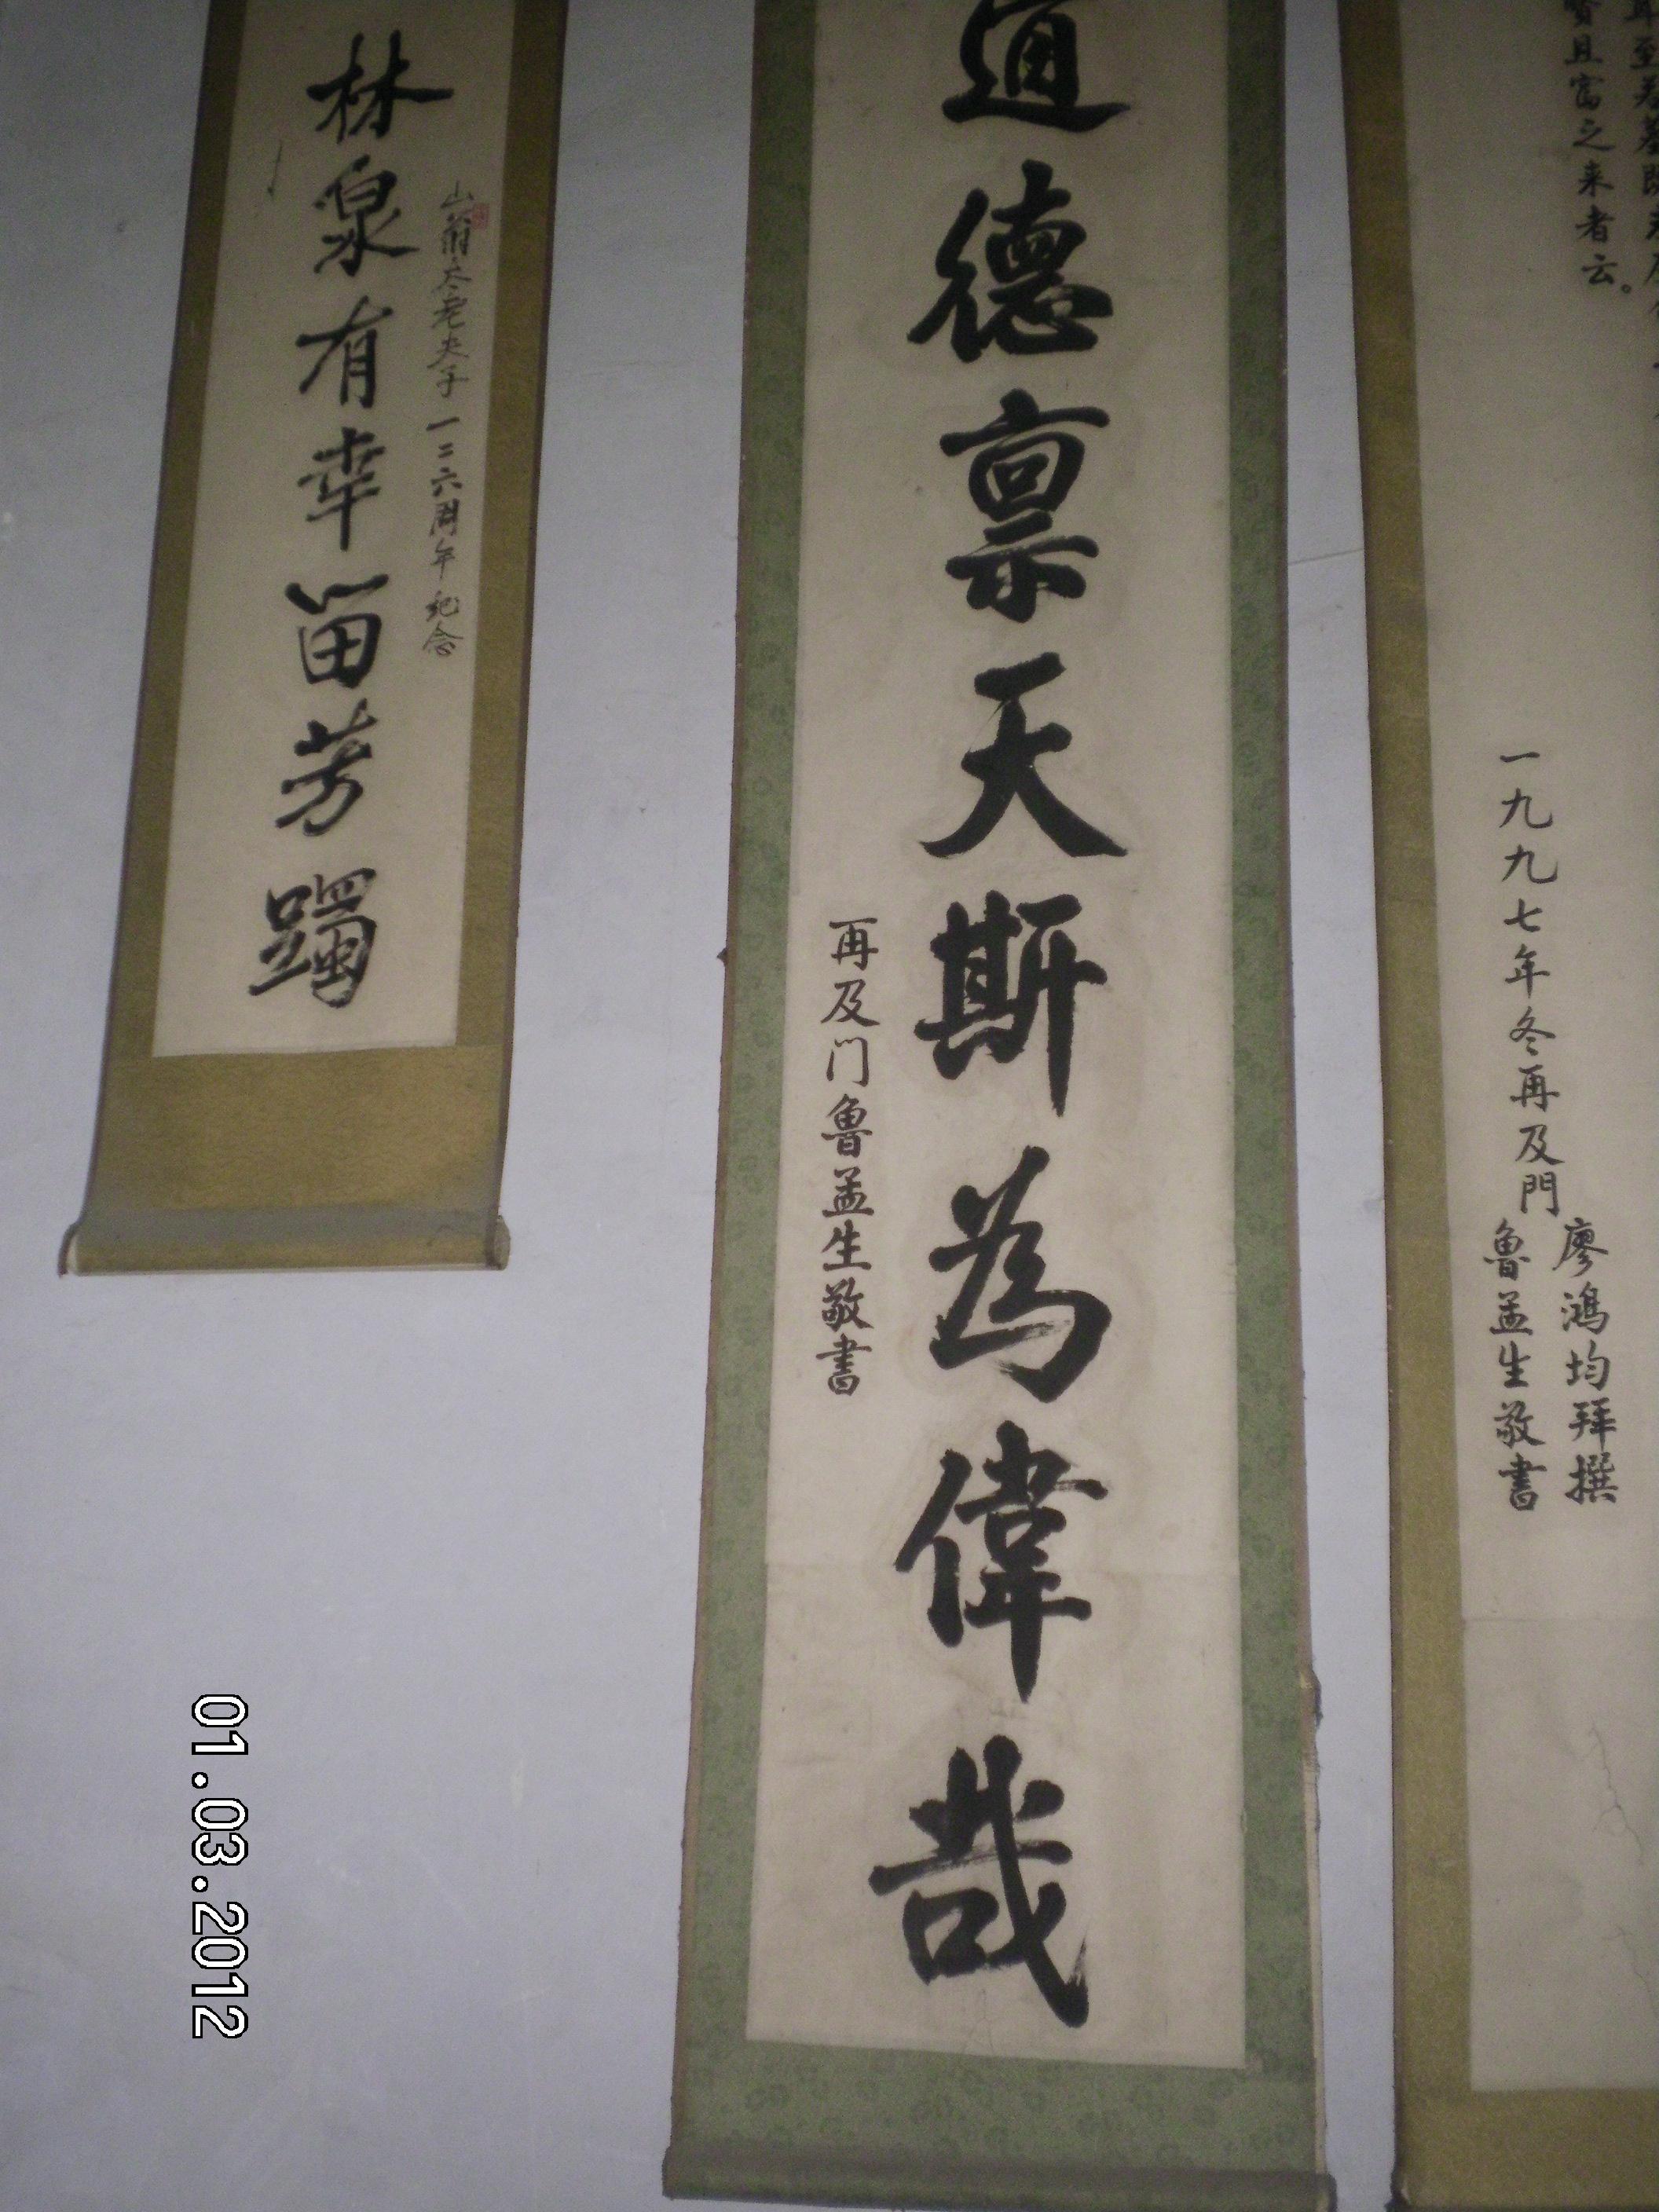 贤且富之来者云。
一九九七年冬再及門
廖鴻均拜撰
魯孟生敬書
道德禀天斯為偉哉
再及门魯孟生敬书
山翁
老夫子一二六周年纪念
林泉有幸留芳躅
01.03.2012